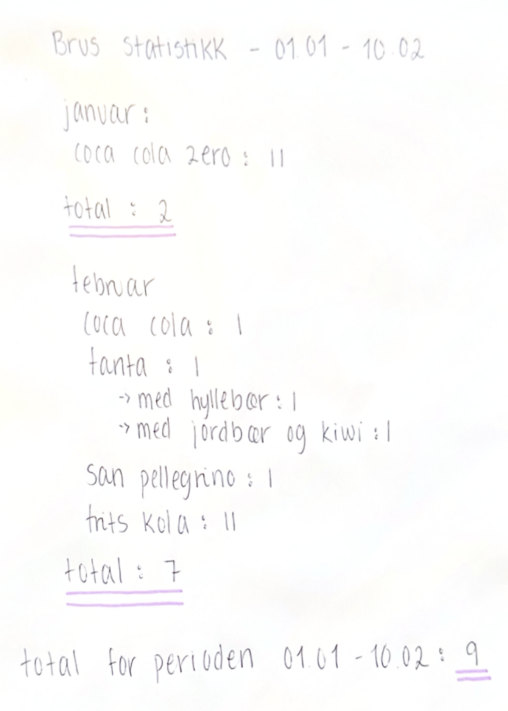 Brus statistikk - 01.01 - 10.02
januar:
coca cola zero: II
total: 2
februar
coca cola: I
fanta: I
→ med hyllebær: I
→ med jordbær og kiwi: I
san pellegrino: I
frits kola: II
total: 7
total for perioden 01.01 - 10.02: 9